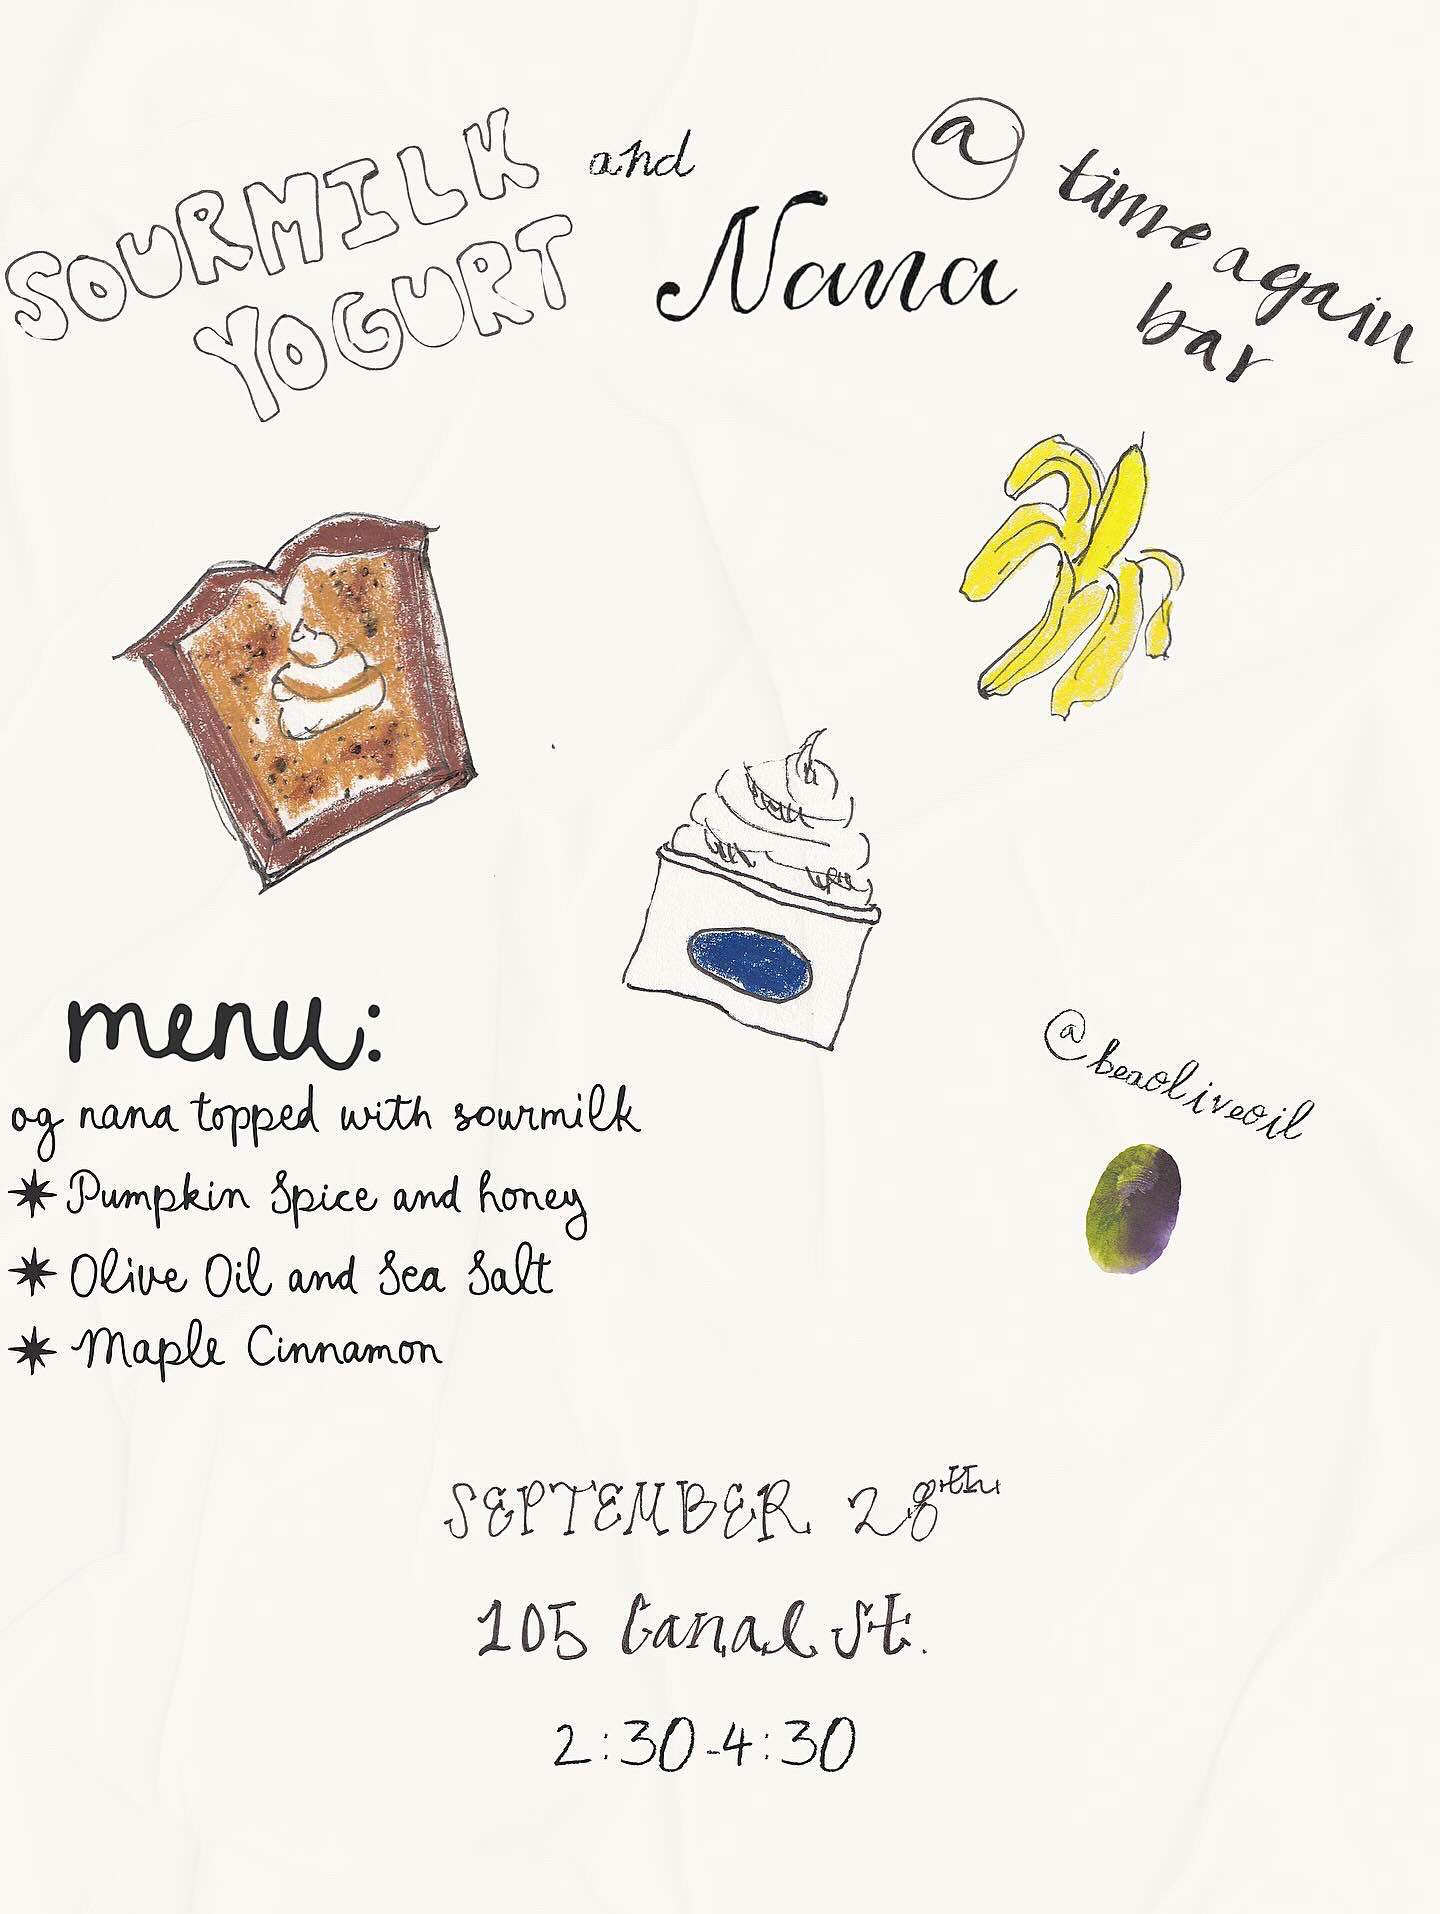 SOURMILK
YOGURT
and
Nana
@ time again
bar
menu:
og nana topped with sourmilk
✷ Pumpkin Spice and honey
✷ Olive Oil and Sea Salt
✷ Maple Cinnamon
@beaoliveoil
SEPTEMBER 28th
105 Canal St.
2:30-4:30